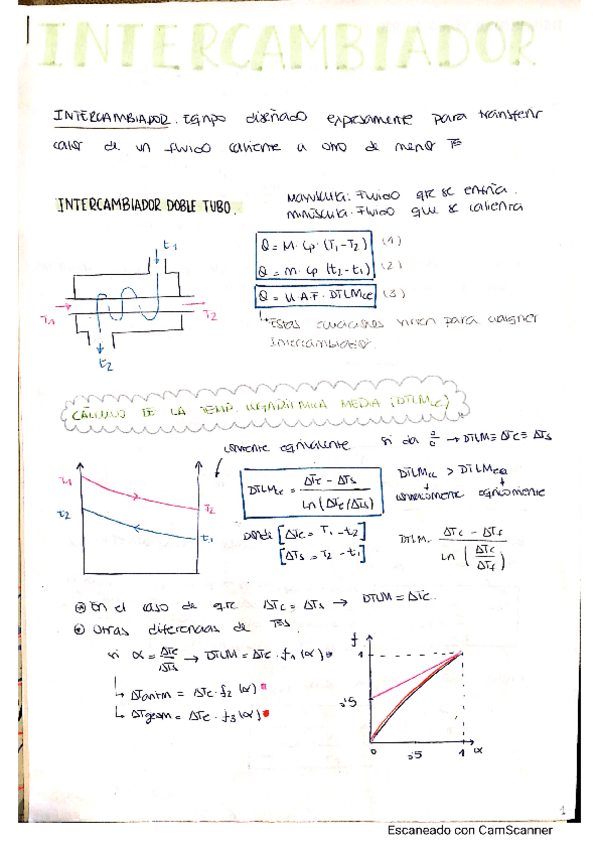 INTERCAMBIADOR
INTERCAMBIADOR. Equipo diseñado expresamente para transferir
calor de un fluido caliente a otro de menor Tª
INTERCAMBIADOR DOBLE TUBO.
Mayúscula: Fluido que se enfría.
minúscula: Fluido que se calienta
t1
Q = M · Cp · (T1 - T2) (1)
Q = m · cp (t2 - t1) (2)
Q = U · A · F · DTLMcc (3)
T1
T2
t2
Estas ecuaciones sirven para cualquier
intercambiador.
CÁLCULO DE LA TEMP. LOGARÍTMICA MEDIA (DTLMcc)
corriente equivalente
si da 0/0 → DTLM ≡ ΔTc ≡ ΔTs
DTLMcc = ΔTc - ΔTs / Ln (ΔTc/ΔTs)
DTLMcc > DTLMeq
T1
T2
t2
t1
Donde [ΔTc = T1 - t2]
[ΔTs = T2 - t1]
DTLM = ΔTc - ΔTf / Ln (ΔTc / ΔTf)
En el caso de que ΔTc = ΔTs → DTLM = ΔTc.
Otras diferencias de Tªs
si α = ΔTc/ΔTs → DTLM = ΔTc · f1 (α)
ΔTaritm = ΔTc · f2 (α)
ΔTgeom = ΔTc · f3 (α)
f
1
.5
0
.5
1
α
1
Escaneado con CamScanner